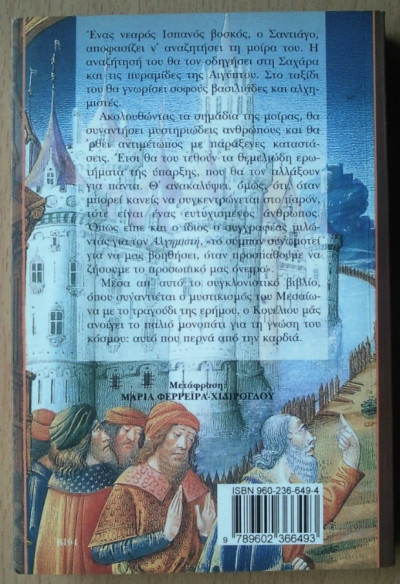 Ένας νεαρός Ισπανός βοσκός, ο Σαντιάγο,
αποφασίζει ν' αναζητήσει τη μοίρα του. Η
αναζήτησή του θα τον οδηγήσει στη Σαχάρα
και τις πυραμίδες της Αιγύπτου. Στο ταξίδι
του θα γνωρίσει σοφούς βασιλιάδες και αλχη-
μιστές.
Ακολουθώντας τα σημάδια της μοίρας, θα
συναντήσει μυστηριώδεις ανθρώπους και θα
'ρθει αντιμέτωπος με παράξενες καταστά-
σεις. Έτσι θα του τεθούν τα θεμελιώδη ερω-
τήματα της ύπαρξης, που θα τον αλλάξουν
για πάντα. Θ' ανακαλύψει, όμως, πως όταν
μπορεί κανείς να συγκεντρώνεται στο παρόν,
τότε είναι ένας ευτυχισμένος άνθρωπος.
Όπως είπε και ο ίδιος ο συγγραφέας μιλώ-
ντας για τον Αλχημιστή, «το σύμπαν συνωμοτεί
για να μας βοηθήσει, όταν προσπαθούμε να
ζήσουμε το προσωπικό μας όνειρο».
Μέσα απ' αυτό το συγκλονιστικό βιβλίο,
όπου συναντιέται ο μυστικισμός του Μεσαίω-
να με το τραγούδι της ερήμου, ο Κοέλιου μάς
ανοίγει το παλιό μονοπάτι για τη γνώση του
κόσμου: αυτό που περνά από την καρδιά.
Μετάφραση:
ΜΑΡΙΑ ΦΕΡΡΕΪΡΑ-ΧΙΔΙΡΟΓΛΟΥ
ISBN 960-236-649-4
9 789602 366493
6164